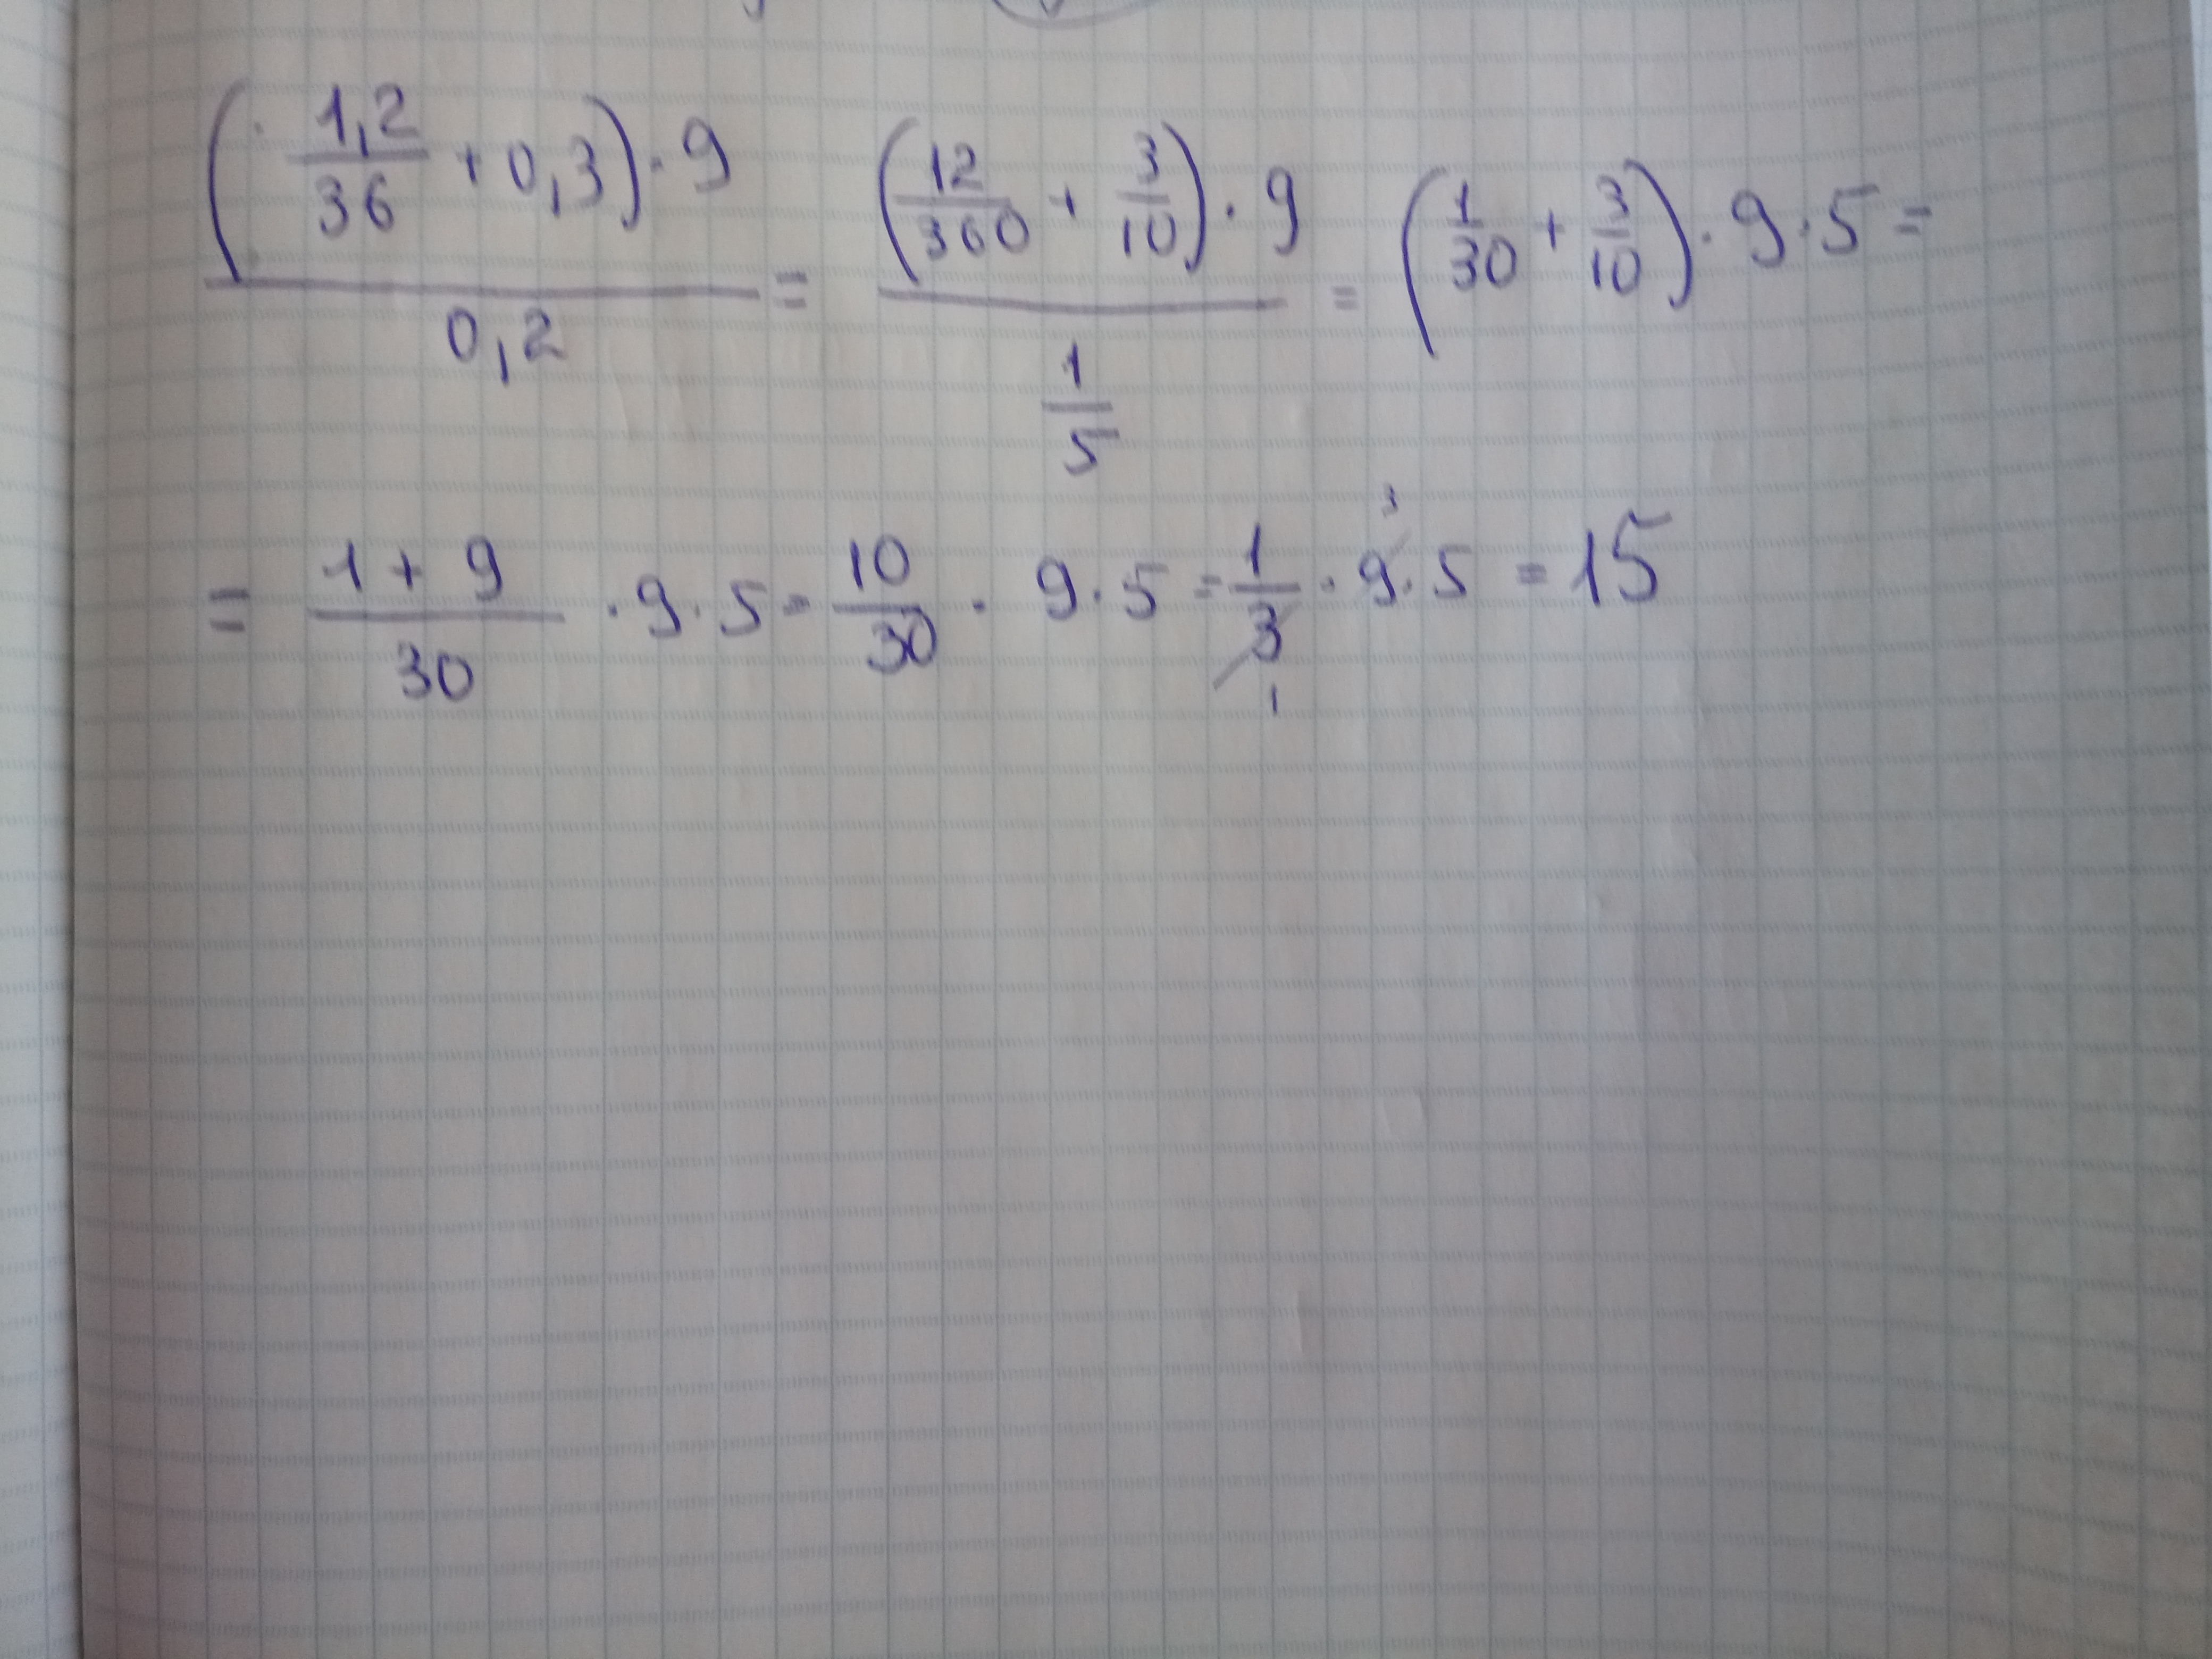 (1,2/36 + 0,3) · 9 / 0,2 = (12/360 + 3/10) · 9 / 1/5 = (1/30 + 3/10) · 9 · 5 =
= 1 + 9/30 · 9 · 5 = 10/30 · 9 · 5 = 1/3 · 9 · 5 = 15